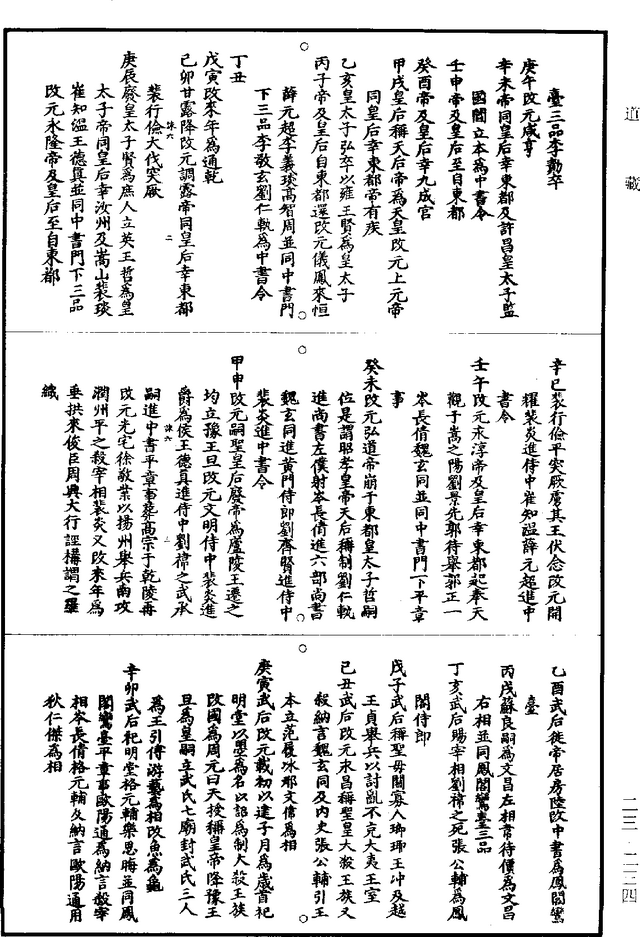 道藏
臺三品李勣卒
庚午改元咸亨
辛未帝同皇后幸東都及許昌皇太子監
國閻立本為中書令
壬申帝及皇后至自東都
癸酉帝及皇后幸九成宮
甲戌皇后稱天后帝為天皇改元上元帝
同皇后幸東都帝有疾
乙亥皇太子弘卒以雍王賢為皇太子
丙子帝及皇后自東都還改元儀鳳來恒
薛元超李義琰高智周並同中書門
下三品李敬玄劉仁軌為中書令
丁丑
戊寅改來年為通乾
己卯甘露降改元調露帝同皇后幸東都
裴行儉大伐突厥
庚辰廢皇太子賢為庶人立英王哲為皇
太子帝同皇后幸汝州及嵩山裴琰
崔知溫王德真並同中書門下三品
改元永隆帝及皇后至自東都
辛巳裴行儉平突厥虜其王伏念改元開
耀裴炎進侍中崔知溫薛元超進中
書令
壬午改元永淳帝及皇后幸東都起奉天
觀于嵩之陽劉景先郭待舉郭正一
岑長倩魏玄同並同中書門下平章
事
癸未改元弘道帝崩于東都皇太子哲嗣
位是謂昭孝皇帝天后稱制劉仁軌
進尚書左僕射岑長倩進六部尚書
魏玄同進黃門侍郎劉齊賢進侍中
裴炎進中書令
甲申改元嗣聖皇后廢帝為廬陵王遷之
均立豫王旦改元文明侍中裴炎進
爵為侯王德真進侍中劉禕之武承
嗣進中書平章事葬高宗于乾陵再
改元光宅徐敬業以揚州舉兵南攻
潤州平之殺宰相裴炎又改來年為
垂拱來俊臣周興大行誣構謂之羅
織
乙酉武后徙帝居房陵改中書為鳳閣鸞
臺
丙戌蘇良嗣為文昌左相韋待價為文昌
右相並同鳳閣鸞臺三品
丁亥武后賜宰相劉禕之死張公輔為鳳
閣侍郎
戊子武后稱聖母閼寡人瑯琊王冲及越
王貞舉兵以討亂不克大夷王室
己丑武后改元永昌稱聖皇大殺王族又
殺納言魏玄同及內史張公輔引王
本立范履冰邢文偉為相
庚寅武后改元載初以建子月為歲首祀
明堂以曌為名以詔為制大殺王族
改國為周元曰天授稱皇帝降豫王
旦為皇嗣立武氏七廟封武氏三人
為王引傅游藝為相改魚為龜
辛卯武后祀明堂格元輔樂思晦並同鳳
閣鸞臺平章事歐陽通為納言殺宰
相岑長倩格元輔久納言歐陽通用
狄仁傑為相
二三·二三四